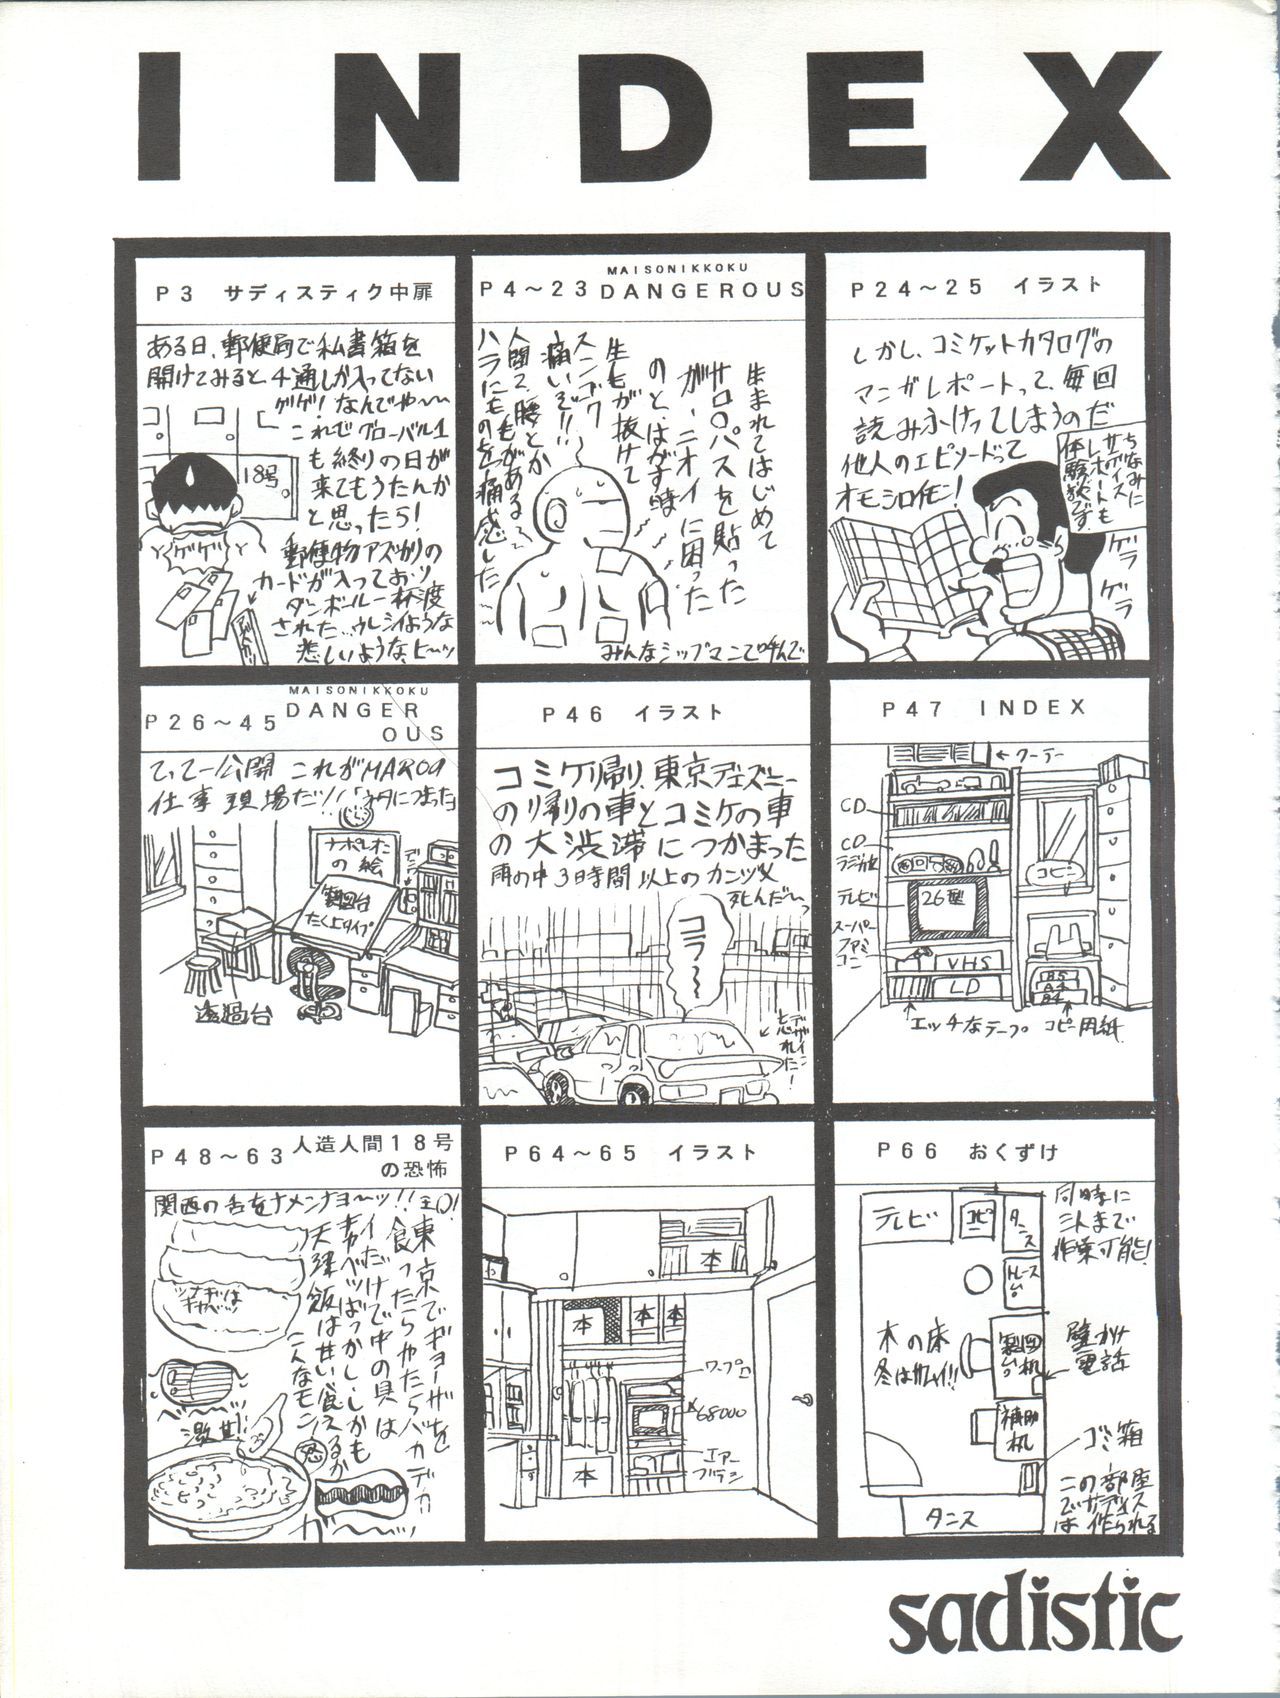 INDEX
P3 サディスティク中扉
ある日、郵便局で私書箱を
開けてみると、4通しか入ってない
ゲゲ！なんでや〜〜
これでグローバル1
も終りの日が
来てもうたんか
と思ったら！
郵便物アズカリの
カードが入っており
ダンボール一杯渡
された…ウレシイような
悲しいような、ヒ〜ッ
18号
ゲゲ
P4〜23 MAISONIKKOKU
DANGEROUS
生まれてはじめて
サロンパスを貼った
が、ニオイに困った
のと、はがす時
生毛が抜けて
スンゴク
痛いぞ!!
人間て、腰とか
ハラにも毛がある
ものを痛感した〜
みんなシップマンて呼んで
P24〜25 イラスト
しかし、コミケットカタログの
マンガレポートって、毎回
読みふけってしまうのだ
他人のエピソードって
オモシロイモン！
ちなみに
サディスのレポートも
体験談です。
ゲラ
ゲラ
P26〜45 MAISONIKKOKU
DANGER
OUS
てってー公開 これがMAROの
仕事現場だッ！
ナポレオン
の絵
製図台
たく上タイプ
デンワ
透過台
P46 イラスト
コミケ帰り、東京ディズニー
の帰りの車とコミケの車
の大渋滞につかまった
雨の中3日時間以上のカンヅメ
死んだ〜っ
コラ〜
デザイン
忘れた！
P47 INDEX
クーラー
CD
CD
ラジカセ
テレビ
スーパー
ファミ
コン
26型
VHS
LD
コピー
B5
A4
B4
エッチなテープ
コピー用紙
P48〜63 人造人間18号
の恐怖
関西の舌をナメンナヨ〜ッ!!
東京でギョーザを
食ったらやたらバカデカ
イだけで中の具は
キャベツばっかし・しかも
天津飯は甘い食えるか
こんなモン
ツナギは
キャベツ
べ〜
激甘
恐
ガ〜〜ッ
P64〜65 イラスト
本
本
本
本
本
ワープロ
68000
エアー
ブラシ
P66 おくずけ
テレビ
コピー
タンス
トレース
台
製図台
机
補助
机
木の床
冬はサムイ!!
タンス
同時に
三人まで
作業可能！
壁かけ
電話
ゴミ箱
この部屋
でサディス
は作られる
sadistic